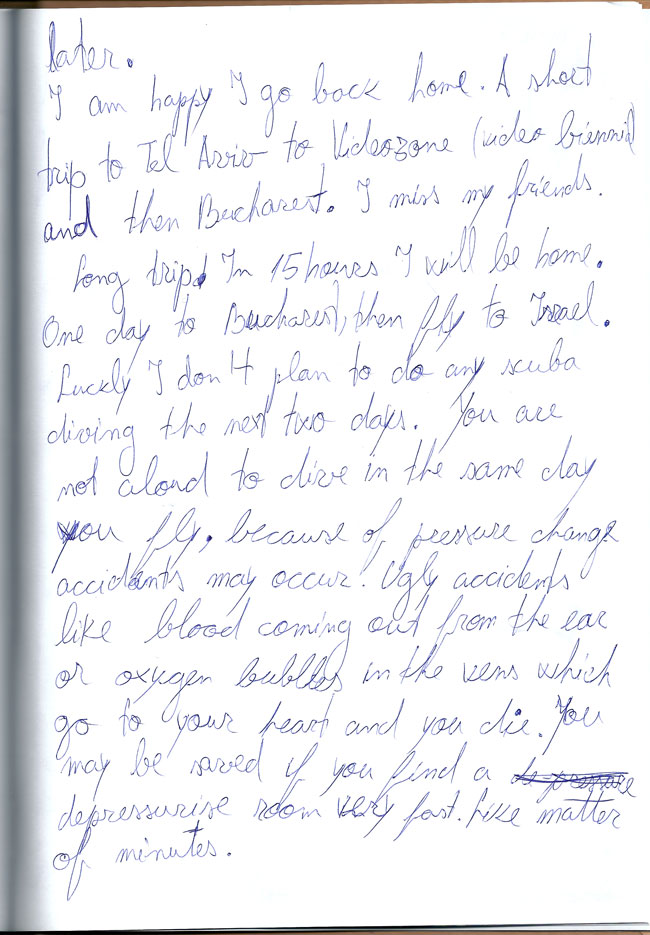 later.
I am happy I go back home. A short
trip to Tel Aviv to Videozone (video biennial)
and then Bucharest. I miss my friends.
Long trip. In 15 hours I will be home.
One day to Bucharest, then fly to Israel.
Luckly I don't plan to do any scuba
diving the next two days. You are
not aloud to dive in the same day
you fly, because of pressure change
accidents may occur. Ugly accidents
like blood coming out from the ear
or oxygen bubbles in the vens which
go to your heart and you die. You
may be saved if you find a de-pressure
depressurise room very fast. Like matter
of minutes.